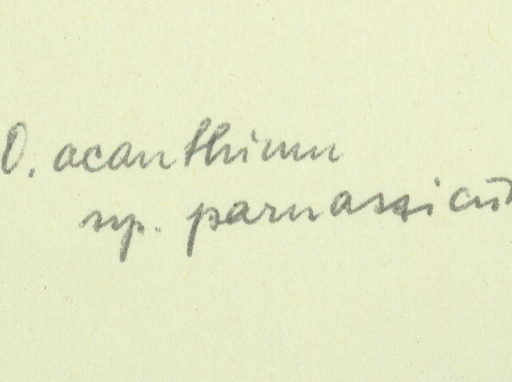 O. acanthium
ssp. parnassicum